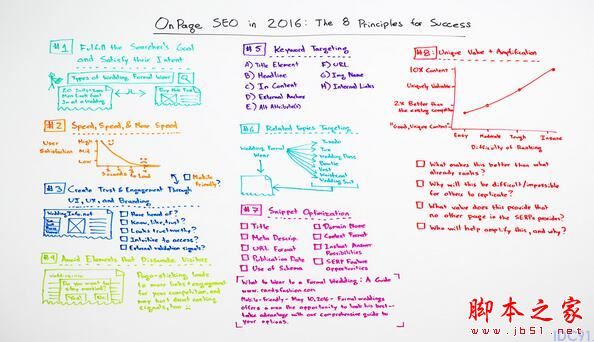 OnPage SEO in 2016: The 8 Principles for Success
#1 Fulfill the Searcher's Goal
and Satisfy their Intent
Types of Wedding Formal Wear
In at a Wedding
#2 Speed, Speed, & More Speed
User
Satisfaction
High
Mid
Low
Seconds to Load
Mobile
Friendly?
#3 Create Trust & Engagement Through
UI, UX, and Branding
WeddingInfo.net
Have heard of?
Know, like, trust?
Looks trustworthy?
Intuitive to access?
External validation signals?
#4 Avoid Elements that Dissuade Visitors
Do you want to
stay married?
Pogo-sticking leads
to more links + engagement
for your competitor, and
may hurt direct ranking
signals, too
#5 Keyword Targeting
A) Title Element
B) Headline
C) In Content
D) External Anchors
E) Alt Attribute(s)
F) URL
G) Img Name
H) Internal Links
#6 Related Topics Targeting
Wedding Formal
Wear
Tuxedo
Tux
Wedding Dress
Bowtie
Vest
Waistcoat
Wedding Suit
#7 Snippet Optimization
Title
Meta Descrip.
URL Format
Publication Date
Use of Schema
Domain Name
Content Format
Instant Answer
Possibilities
SERP Feature
Opportunities
What to Wear to a Formal Wedding: A Guide
www.randsfashion.com
Mobile-friendly - May 10, 2016 - Formal weddings
offers a man the opportunity to look his best -
take advantage with our comprehensive guide to
your options.
#8: Unique Value + Amplification
10X Content
Uniquely Valuable
2X Better than
the existing competition
"Good, Unique Content"
Easy
Moderate
Tough
Insane
Difficulty of Ranking
What makes this better than what
already ranks?
Why will this be difficult/impossible
for others to replicate?
What value does this provide that
no other page in the SERPs provides?
Who will help amplify this, and why?
脚本之家
www.jb51.net